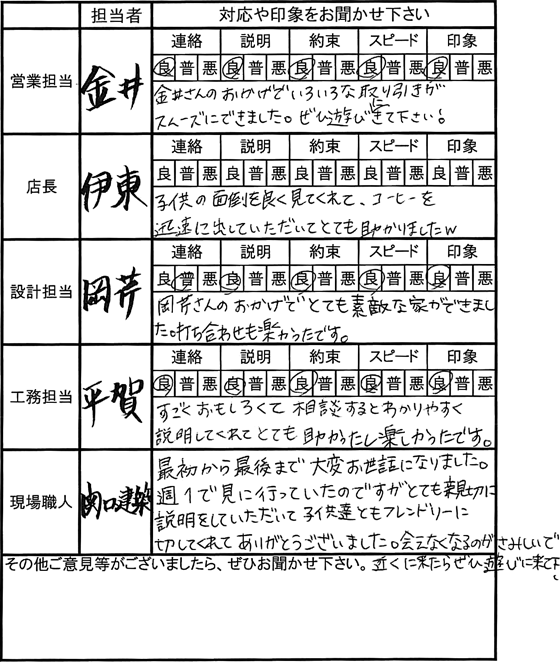 担当者 対応や印象をお聞かせ下さい
営業担当 金井
連絡 説明 約束 スピード 印象
良 普 悪 良 普 悪 良 普 悪 良 普 悪 良 普 悪
金井さんのおかげでいろいろな取り引きが
スムーズにできました。ぜひ遊びに来て下さい!
店長 伊東
連絡 説明 約束 スピード 印象
良 普 悪 良 普 悪 良 普 悪 良 普 悪 良 普 悪
子供の面倒を良く見てくれて、コーヒーを
迅速に出していただいてとても助かりましたw
設計担当 岡芹
連絡 説明 約束 スピード 印象
良 普 悪 良 普 悪 良 普 悪 良 普 悪 良 普 悪
岡芹さんのおかげでとても素敵な家ができまし
た。打ち合わせも楽かったです。
工務担当 平賀
連絡 説明 約束 スピード 印象
良 普 悪 良 普 悪 良 普 悪 良 普 悪 良 普 悪
すごくおもしろくて相談するとわかりやすく
説明してくれてとても助かったし楽しかったです。
現場職人 関口建築
最初から最後まで大変お世話になりました。
週1で見に行っていたのですがとても親切に
説明をしていただいて子供達ともフレンドリーに
切してくれてありがとうございました。会えなくなるのがさみしいで
その他ご意見等がございましたら、ぜひお聞かせ下さい。近くに来たらぜひ遊びに来て下